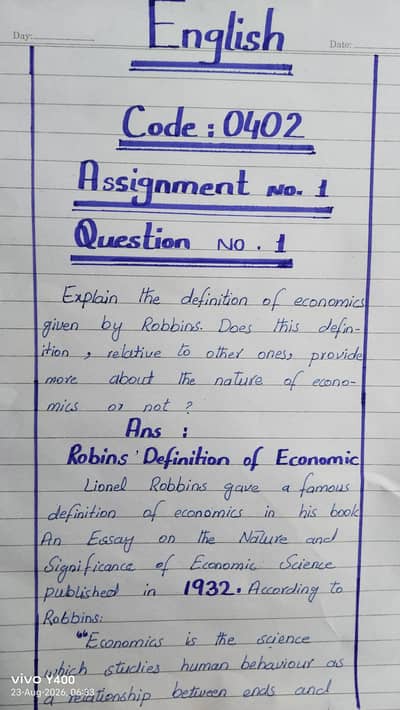 English
Day: Date:
Code : 0402
Assignment No. 1
Question NO . 1
Explain the definition of economics
given by Robbins. Does this defin-
ition , relative to other ones, provide
more about the nature of econo-
mics or not ?
Ans :
Robins' Definition of Economic
Lionel Robbins gave a famous
definition of economics in his book
An Essay on the Nature and
Significance of Economic Science
published in 1932. According to
Robbins:
"Economics is the science
which studies human behaviour as
a relationship between ends and
vivo Y400
23-Aug-2026, 06:33